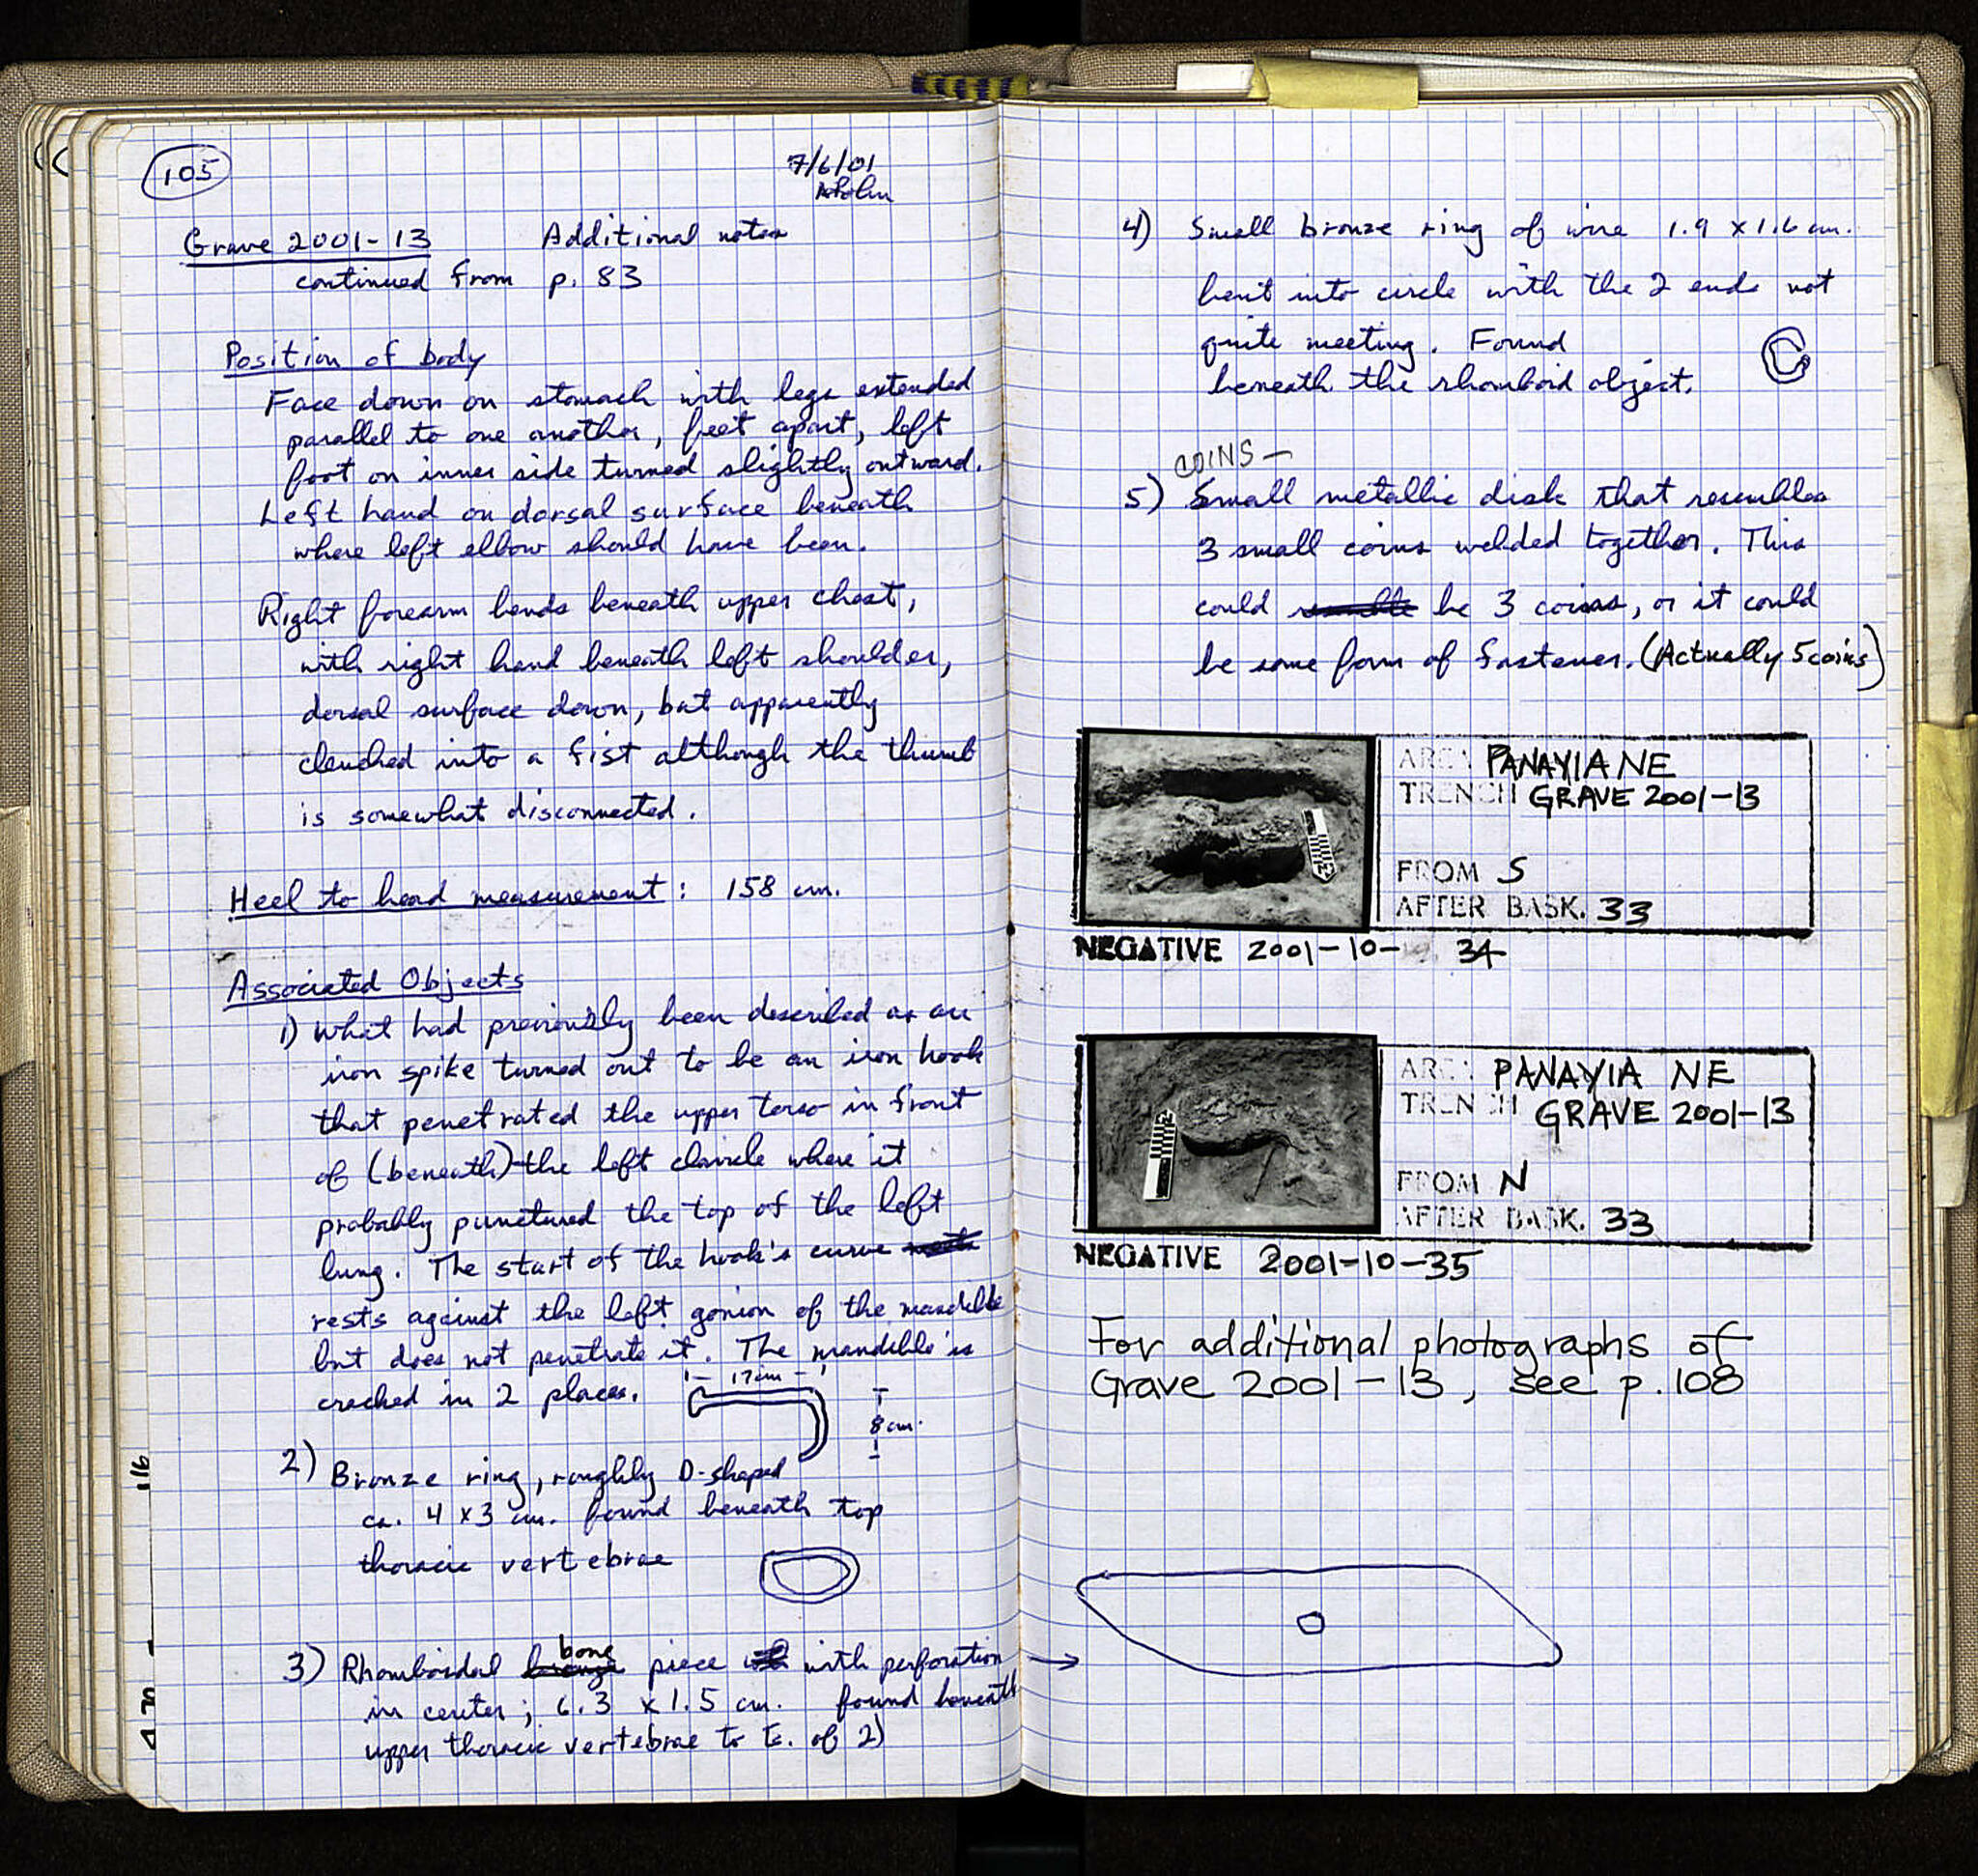 105
7/6/01
Grave 2001-13 Additional notes
continued from p. 83
Position of body
Face down on stomach with legs extended
parallel to one another, feet apart, left
foot on inner side turned slightly outward.
Left hand on dorsal surface beneath
where left elbow should have been.
Right forearm bends beneath upper chest,
with right hand beneath left shoulder,
dorsal surface down, but apparently
clenched into a fist although the thumb
is somewhat disconnected.
Heel to head measurement: 158 cm.
Associated Objects
1) What had previously been described as an
iron spike turned out to be an iron hook
that penetrated the upper torso in front
of (beneath) the left clavicle where it
probably punctured the top of the left
lung. The start of the hook's curve
rests against the left gonion of the mandible
but does not penetrate it. The mandible is
cracked in 2 places.
17cm
8cm.
2) Bronze ring, roughly D-shaped
ca. 4 x 3 cm. found beneath top
thoracic vertebrae
3) Rhomboidal bronze bone piece with perforation
in center; 6.3 x 1.5 cm. found beneath
upper thoracic vertebrae to E. of 2)
116
4) Small bronze ring of wire 1.9 x 1.6 cm.
bent into circle with the 2 ends not
quite meeting. Found
beneath the rhomboid object.
COINS -
5) Small metallic disk that resembles
3 small coins welded together. This
could resemble be 3 coins, or it could
be some form of fastener. (Actually 5 coins)
AREA PANAYIA NE
TRENCH GRAVE 2001-13
FROM S
AFTER BASK. 33
NEGATIVE 2001-10- 34
AREA PANAYIA NE
TRENCH GRAVE 2001-13
FROM N
AFTER BASK. 33
NEGATIVE 2001-10-35
For additional photographs of
Grave 2001-13, see p. 108